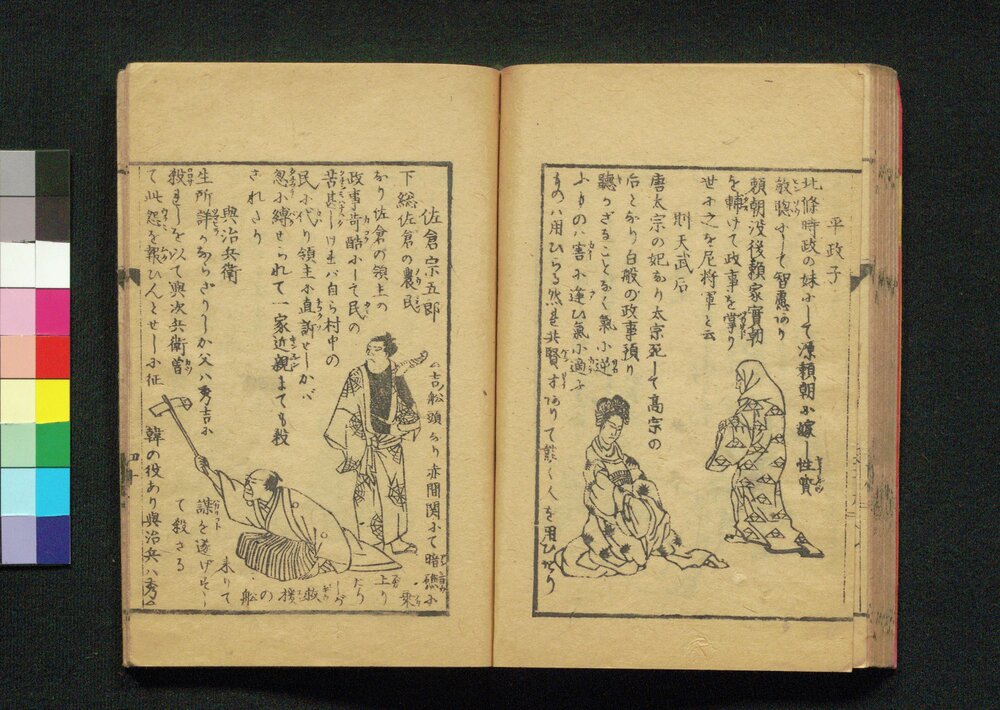 平政子
北條時政の妹小して源頼朝に嫁し性質
敏聡小して智慮あり
頼朝没後頼家實朝
を輔けて政事を掌り
世小之を尼将軍と云
則天武后
唐太宗の妃なり太宗死して高宗の
后となり百般の政事預り
聽かざることなく氣小逆
ふものハ害小逢ひ氣小適ふ
ものハ用ひらる然れ共賢才ありて能く人を用ひたり
佐倉宗五郎
下総佐倉の農民
なり佐倉の領主の
政事苛酷小して民の
苦甚しけれバ自ら村中の
民小代り領主小直訴せしかバ
忽小縛せられて一家近親までも殺
されたり
與治兵衛
生所詳ならざりしか父ハ秀吉小
殺されしを以て與次兵衛曽
て此怨を報ひんとせし小征
韓の役あり與治兵ハ秀
吉船頭となり赤間関小て暗礁小
乗
上り
たり
しが
救
援
の
船
来りて
謀を遂げず
て殺さる
四十